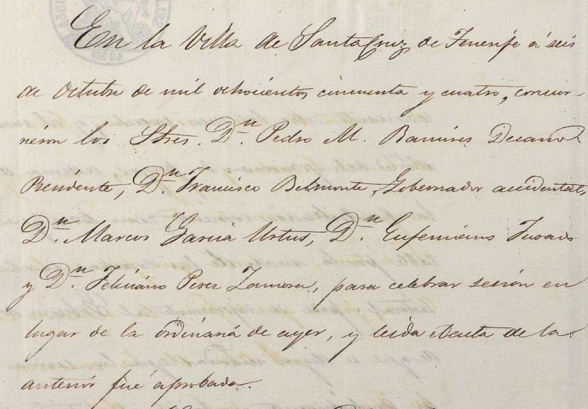 En la Villa de Santa Cruz de Tenerife á seis
de octubre de mil ochocientos cincuenta y cuatro, concur-
rieron los Sres. Dn. Pedro M. Ramires Decano
Presidente, Dn. Francisco Belmonte, Gobernador accidental,
Dn. Marcos Garcia Dn. Eufemiano Jurado
y Dn. Feliciano Perez Zamora, para celebrar sesión en
lugar de la ordinaria de ayer, y leida el acta de la
anterior fué aprobada.